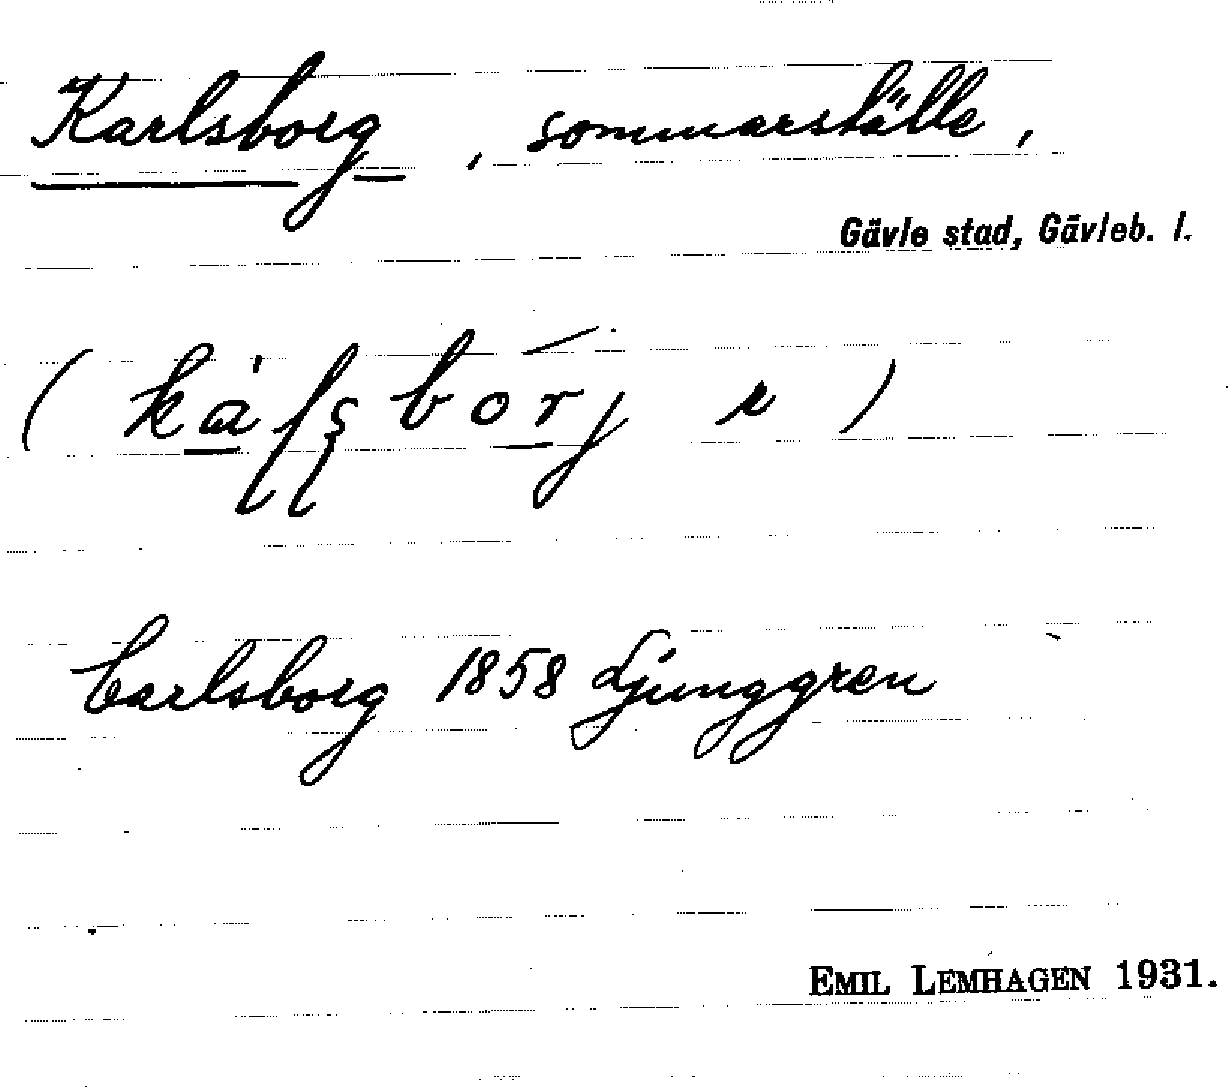 Karlsborg, sommarställe,
Gävle stad, Gävleb. l.
Carlsborg 1858 Ljunggren
EMIL LEMHAGEN 1931.